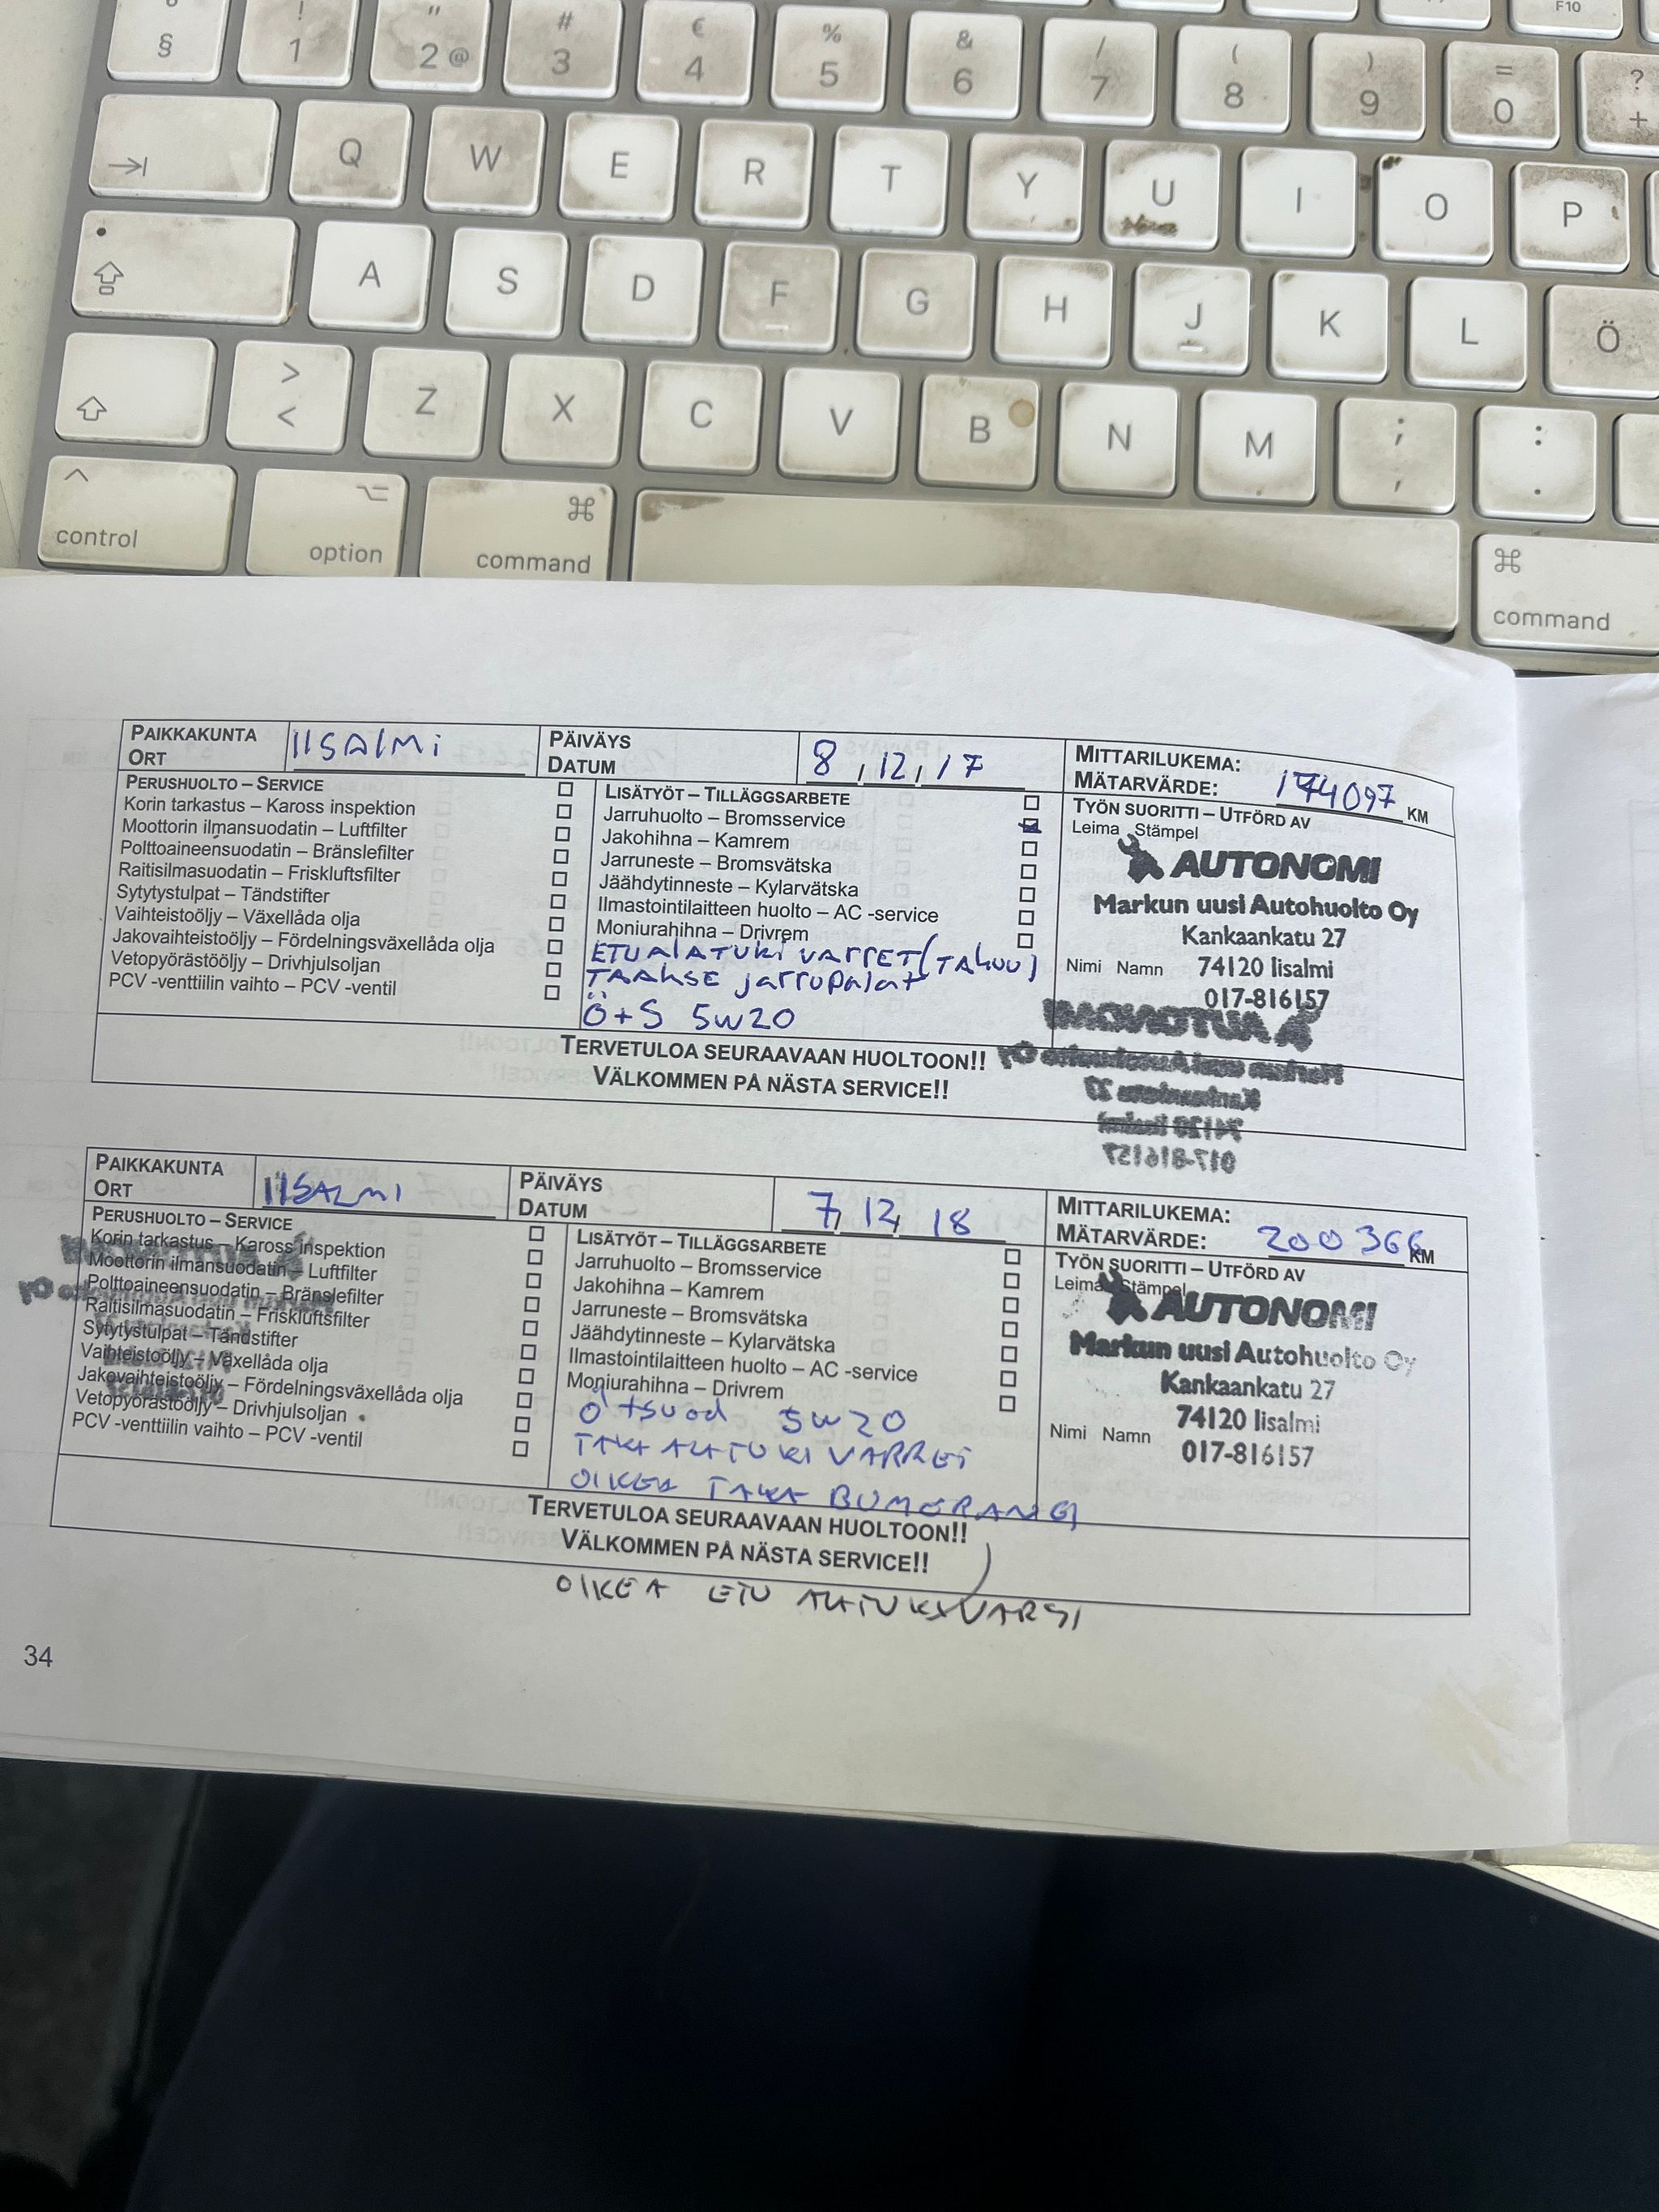 §
! 1
" 2 @
# 3
€ 4
% 5
& 6
/ 7
( 8
) 9
= 0
? +
F10
Q W E R T Y U I O P
A S D F G H J K L Ö
> < Z X C V B N M ; , : .
control option ⌘ command ⌘ command
PAIKKAKUNTA ORT IISALMI
PÄIVÄYS DATUM 8,12,17
MITTARILUKEMA: MÄTARVÄRDE: 174097 KM
PERUSHUOLTO – SERVICE
Korin tarkastus – Kaross inspektion
Moottorin ilmansuodatin – Luftfilter
Polttoaineensuodatin – Bränslefilter
Raitisilmasuodatin – Friskluftsfilter
Sytytystulpat – Tändstifter
Vaihteistoöljy – Växellåda olja
Jakovaihteistoöljy – Fördelningsväxellåda olja
Vetopyörästööljy – Drivhjulsoljan
PCV -venttiilin vaihto – PCV -ventil
LISÄTYÖT – TILLÄGGSARBETE
Jarruhuolto – Bromsservice
Jakohihna – Kamrem
Jarruneste – Bromsvätska
Jäähdytinneste – Kylarvätska
Ilmastointilaitteen huolto – AC -service
Moniurahihna – Drivrem
ETUALATUKI VARRET (TAKUU)
TAAKSE jarrupalat
Ö+S 5W20
TYÖN SUORITTI – UTFÖRD AV
Leima Stämpel
AUTONOMI
Markun uusi Autohuolto Oy
Kankaankatu 27
Nimi Namn 74120 Iisalmi
017-816157
TERVETULOA SEURAAVAAN HUOLTOON!!
VÄLKOMMEN PÅ NÄSTA SERVICE!!
AUTONOMI
Markun uusi Autohuolto Oy
Kankaankatu 27
74120 Iisalmi
017-816157
PAIKKAKUNTA ORT IISALMI
PÄIVÄYS DATUM 7,12,18
MITTARILUKEMA: MÄTARVÄRDE: 200366 KM
PERUSHUOLTO – SERVICE
Korin tarkastus – Kaross inspektion
Moottorin ilmansuodatin – Luftfilter
Polttoaineensuodatin – Bränslefilter
Raitisilmasuodatin – Friskluftsfilter
Sytytystulpat – Tändstifter
Vaihteistoöljy – Växellåda olja
Jakovaihteistoöljy – Fördelningsväxellåda olja
Vetopyörästööljy – Drivhjulsoljan
PCV -venttiilin vaihto – PCV -ventil
LISÄTYÖT – TILLÄGGSARBETE
Jarruhuolto – Bromsservice
Jakohihna – Kamrem
Jarruneste – Bromsvätska
Jäähdytinneste – Kylarvätska
Ilmastointilaitteen huolto – AC -service
Moniurahihna – Drivrem
Ö+suod 5W20
TAKA ALATUKI VARRET
OIKEA TAKA BUMERANGI
TYÖN SUORITTI – UTFÖRD AV
Leima Stämpel
AUTONOMI
Markun uusi Autohuolto Oy
Kankaankatu 27
74120 Iisalmi
Nimi Namn 017-816157
TERVETULOA SEURAAVAAN HUOLTOON!!
VÄLKOMMEN PÅ NÄSTA SERVICE!!
OIKEA ETU ALATUKIVARSI
34